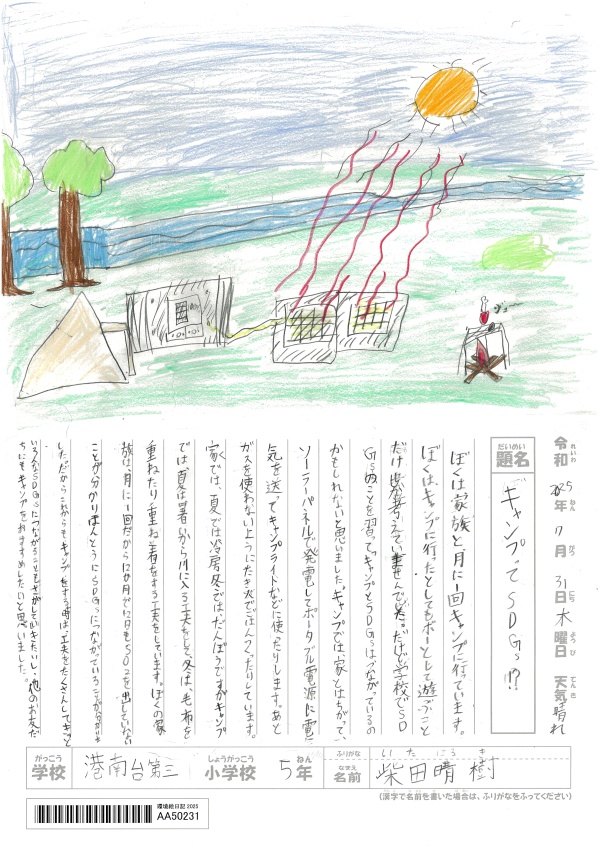 令和 2025年 7月 31日 木曜日 天気 晴れ
れいわ ねん がつ にち ようび てんき
だいめい
題名
キャンプでSDGs!?
ぼくは家族と月に一回キャンプに行っています。
ぼくは、キャンプに行ったとしてもボーとして遊ぶこと
だけしか考えていませんでした。だけど学校でSD
Gsのことを習って、キャンプとSDGsはつながっているの
かもしれないと思いました。キャンプでは、家とはちがって、
ソーラーパネルで発電してポータブル電源に電
気を送ってキャンプライトなどに使ったりします。あと
ガスを使わないようにたき火でごはんつくったりしています。
家では、夏では冷房冬ではだんぼうですがキャンプ
では夏は暑いから川に入る工夫をして、冬は、毛布を
重ねたり重ね着をする工夫をしています。ぼくの家
族は、月に一回だから12か月で12日もCO2を出していない
ことが分かりほんとうにSDGsにつながっていることが分かりま
しただからこれからもキャンプをする時は、工夫をたくさんしてもっと
いろんなSDGsにつながることもさがしていきたいし、他のお友だ
ちにもキャンプをおすすめしたいと思いました。
がっこう
学校
港南台第三
しょうがっこう
小学校
5年
ねん
ふりがな
なまえ
名前
柴田晴樹
(漢字で名前を書いた場合は、ふりがなをふってください)
環境絵日記 2025
AA50231